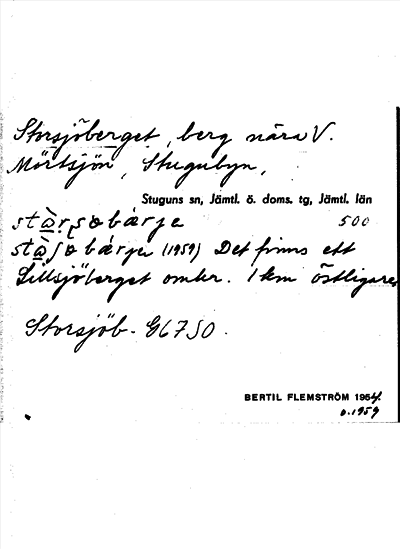 Storsjöberget, berg nära V.
Mörtsjön, Stugubyn,
Stuguns sn, Jämtl. ö. doms. tg, Jämtl. län
500
(1959) Det finns ett
Lillsjöberget omkr. 1 km östligare
Storsjöb- G6750.
BERTIL FLEMSTRÖM 1954
o. 1959